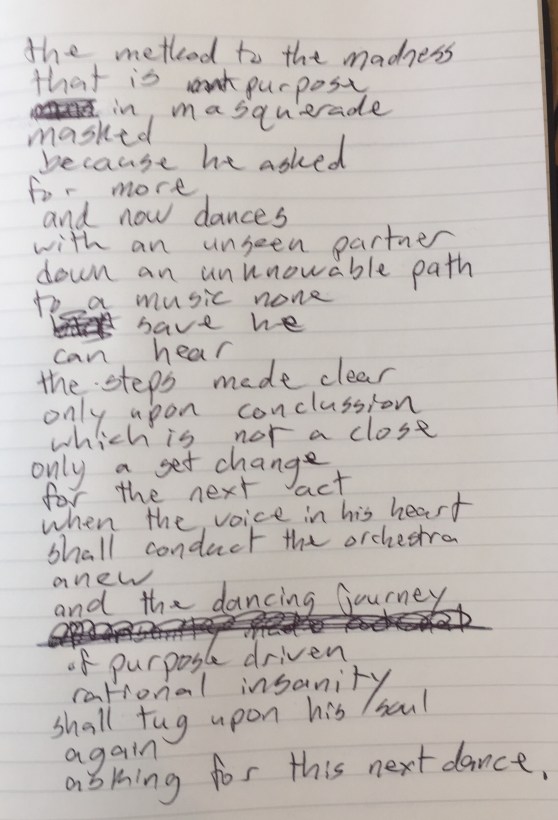 the method to the madness
that is purpose
in masquerade
masked
because he asked
for more
and now dances
with an unseen partner
down an unknowable path
to a music none
save he
can hear
the steps made clear
only upon conclussion
which is not a close
only a set change
for the next act
when the voice in his heart
shall conduct the orchestra
anew
and the dancing journey
of purpose driven
rational insanity
shall tug upon his soul
again
asking for this next dance.